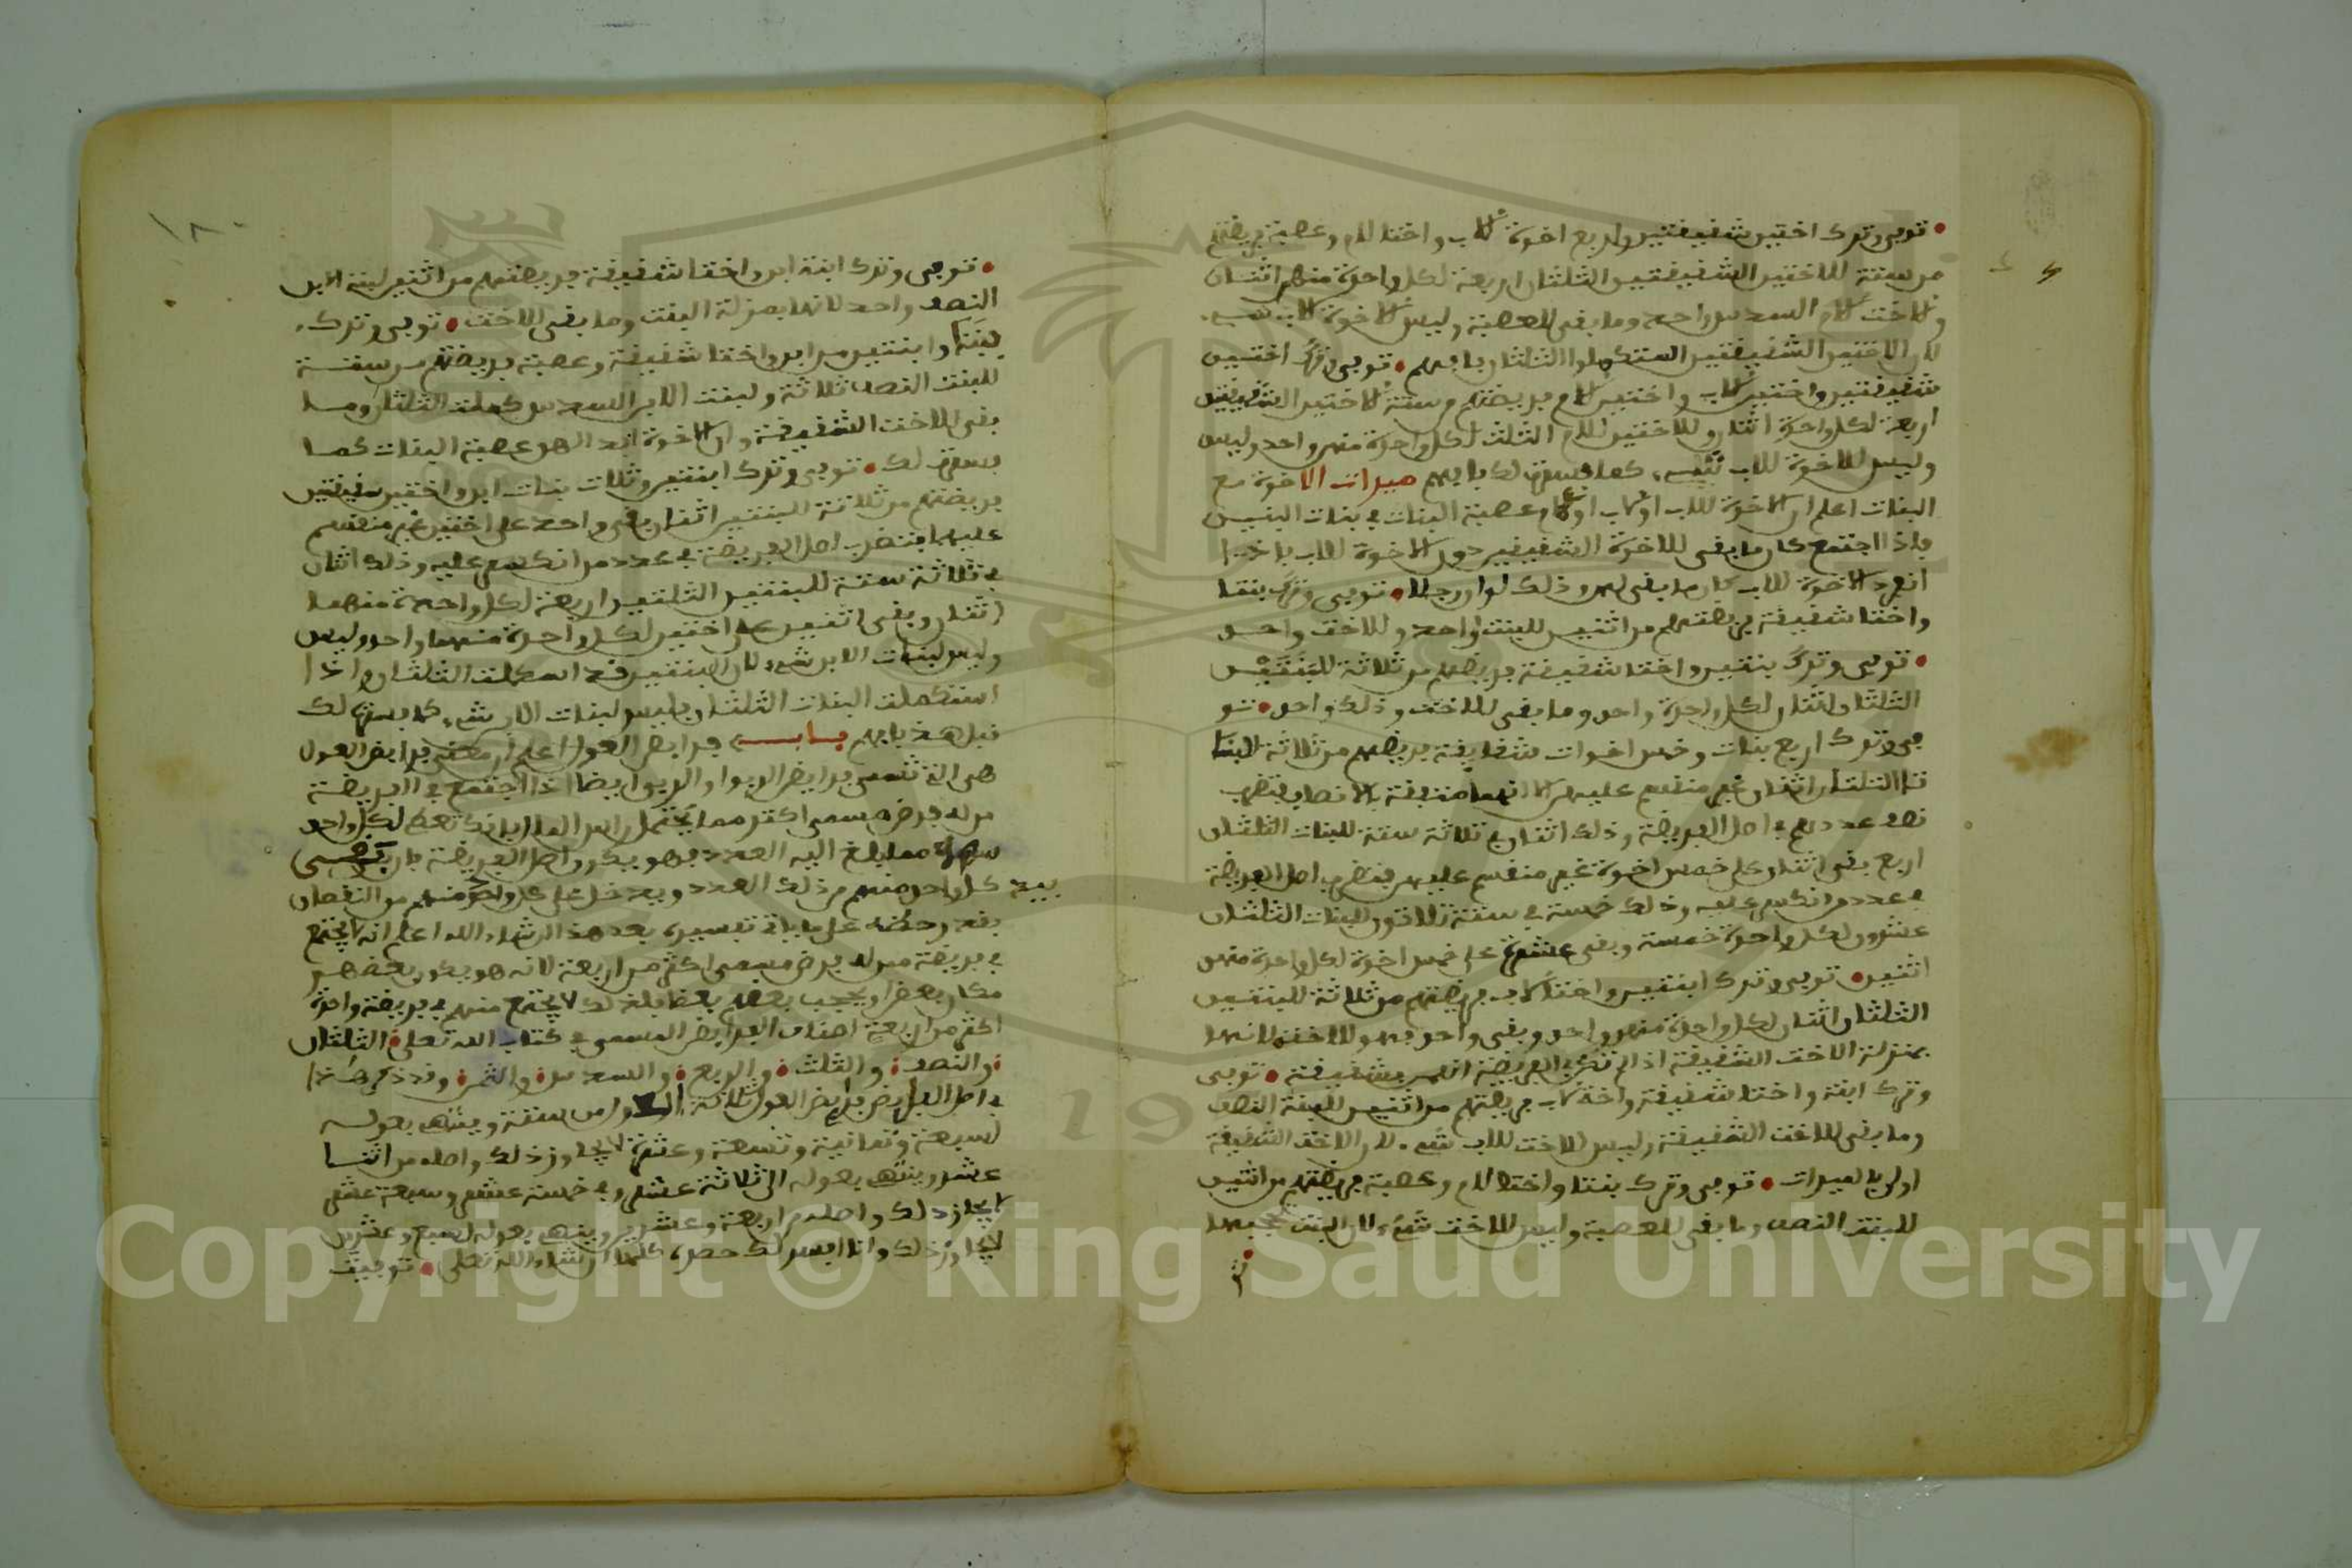 توفي وترك اختين شفيفتين واربع اخوة للاب واختا للام وعصبة فريضتهم
من ستة للاختين الشفيفتين الثلثان اربعة لكل واحدة منهم اثنان
وللاخت للام السدس واحد وما بقى للعصبة وليس للاخوة للاب شيء
لان الاختين الشفيفتين استكملوا الثلثان فافهم توفي وترك اختين
شفيفتين واختين للاب واختين للام فريضتهم من ستة للاختين الشفيفتين
اربعة لكل واحدة اثنان وللاختين للام الثلث لكل واحدة منهم واحد وليس
وليس للاخوة للاب شيء كما فسرت لك فافهم ميراث الاخوة مع
البنات اعلم ان الاخوة للاب او للاب او للام عصبة البنات في بنات البنين
فاذا اجتمع كان ما بقى للاخوة الشفيفين دون الاخوة للاب فاذا
انفرد الاخوة للاب كان ما بقى لهم وذلك توفي وترك بنتا
واختا شفيفة فريضتهم من اثنين للبنت واحد وللاخت واحد
توفي وترك بنتين واختا شفيفة فريضتهم من ثلاثة للبنتين
الثلثان اثنان لكل واحدة واحد وما بقى للاخت وذلك واحد تو
في وترك اربع بنات وخمس اخوات شفايفة فريضتهم من ثلاثة للبنا
ت الثلثان اثنان غير منقسم عليهم الا انها متفقة بالانصاف فتضرب
نصف عددهم في اصل الفريضة وذلك اثنان في ثلاثة ستة للبنات الثلثان
اربع بقى اثنان على خمس اخوة غير منقسم عليهم فتضرب اصل الفريضة
في عدد من انكسر عليه وذلك خمسة في ستة ثلاثون للبنات الثلثان
عشرون لكل واحدة خمسة وبقى عشرة على خمس اخوة لكل واحدة منهن
اثنين توفي وترك ابنتين واختا للاب فريضتهم من ثلاثة للبنتين
الثلثان اثنان لكل واحدة منهم واحد وبقى واحد فهو للاخت لانها
بمنزلة الاخت الشفيفة اذا لم تكن في الفريضة شفيفة توفي
وترك ابنة واختا شفيفة واختا للاب فريضتهم من اثنين للبنة النصف
وما بقى للاخت الشفيفة وليس للاخت للاب شيء لان الاخت الشفيفة
اولى بالميراث توفي وترك بنتا واختا للام وعصبة فريضتهم من اثنين
للبنت النصف وما بقى للعصبة وليس للاخت شيء لان البنت تحجبها
١٨
توفي وترك ابنة ابن واختا شفيفة فريضتهم من اثنين لبنة الابن
النصف واحد لانها بمنزلة البنت وما بقى للاخت توفي وترك
بنتا وابنتين من ابن واختا شفيفة وعصبة فريضتهم من ستة
للبنت النصف ثلاثة ولبنت الابن السدس كملت الثلثان وما
بقى للاخت الشفيفة وان الاخوة عصبة البنات كما
فسرت لك توفي وترك ابنتين وثلاث بنات ابن واختين شفيفتين
فريضتهم من ثلاثة للبنتين اثنان بقى واحد على اختين غير منقسم
عليهما فتضرب اصل الفريضة في عدد من انكسر عليه وذلك اثنان
في ثلاثة ستة للبنتين الثلثين اربعة لكل واحدة منهما
اثنان وبقى اثنين على اختين لكل واحدة منهما واحد وليس
وليس لبنات الابن شيء لان البنتين قد استكملت الثلثان واذا
استكملت البنات الثلثان فليس لبنات الابن شيء كما فسرت لك
قبل هذا فافهم باب فرايض العول اعلم ان معنى فرايض العول
هي التي تسمى فرايض الربوا والربوا ايضا اذا اجتمع في الفريضة
من له فرض مسمى اكثر مما يحتمل راس المال فانك تعطي لكل واحد
سهمه مما بلغ اليه العدد فهو يكون اصل الفريضة
بيد كل واحد منهم من ذلك العدد ويدخل على كل واحد منهم من النقصان
بقدر حظه على ما ياتي تفسيره بعد هذا ان شاء الله اعلم انه لا يجتمع
في فريضة من له فرض مسمى اكثر من اربعة لانه هو يكون بعضهم
مكان بعض او يحجب بعضهم بعضا فلذلك لا يجتمع منهم في فريضة واحدة
اكثر من اربعة اصناف الفرايض المسمى في كتاب الله تعلى الثلثان
والنصف والثلث والربع والسدس والثمن وقد ذكر هذا
في اصل الفرايض فرايض العول ثلاثة الاول من ستة وينتهي بعوله
لسبعة وثمانية وتسعة وعشرة لا يجاوز ذلك واصله من اثنا
عشر وينتهي بعوله الى ثلاثة عشر وفي خمسة عشر وسبعة عشر
لا يجاوز ذلك واصله من اربعة وعشرين وينتهي بعوله لسبع وعشرين
لا يجاوز ذلك وانا ايسر لك حصره كلها ان شاء الله تعلى توفيت
Copyright © King Saud University
19